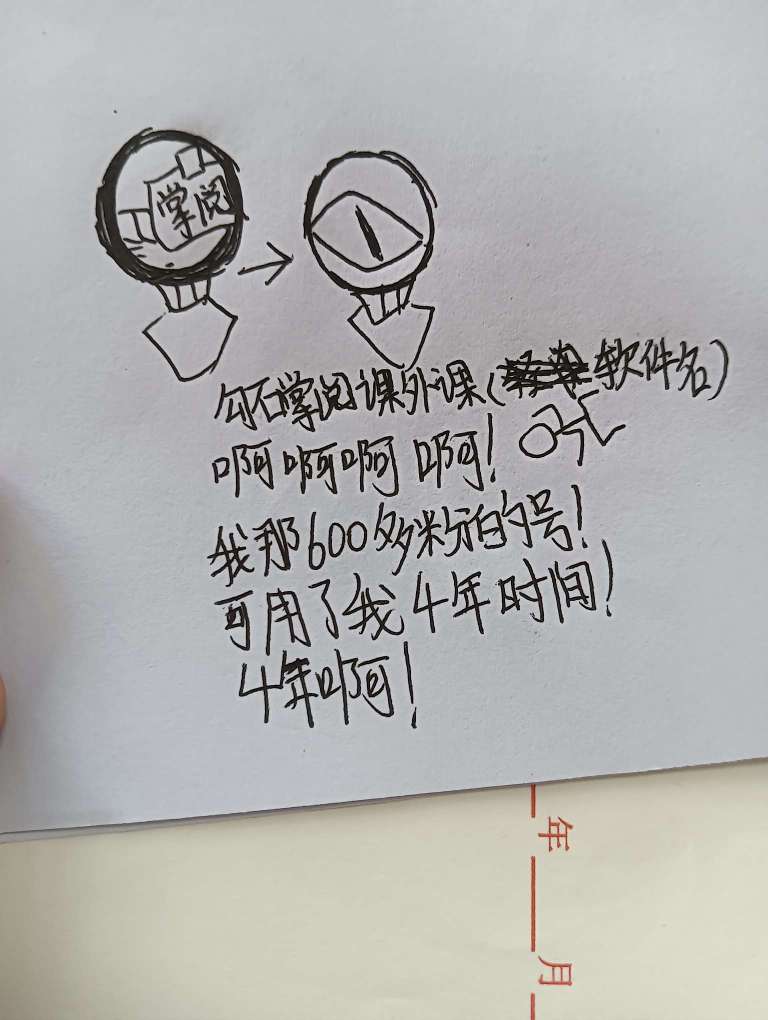 掌阅
勾石掌阅课外课(软件名)
啊啊啊啊!
我那600多粉的号!
可用了我4年时间!
4年啊!
年
月